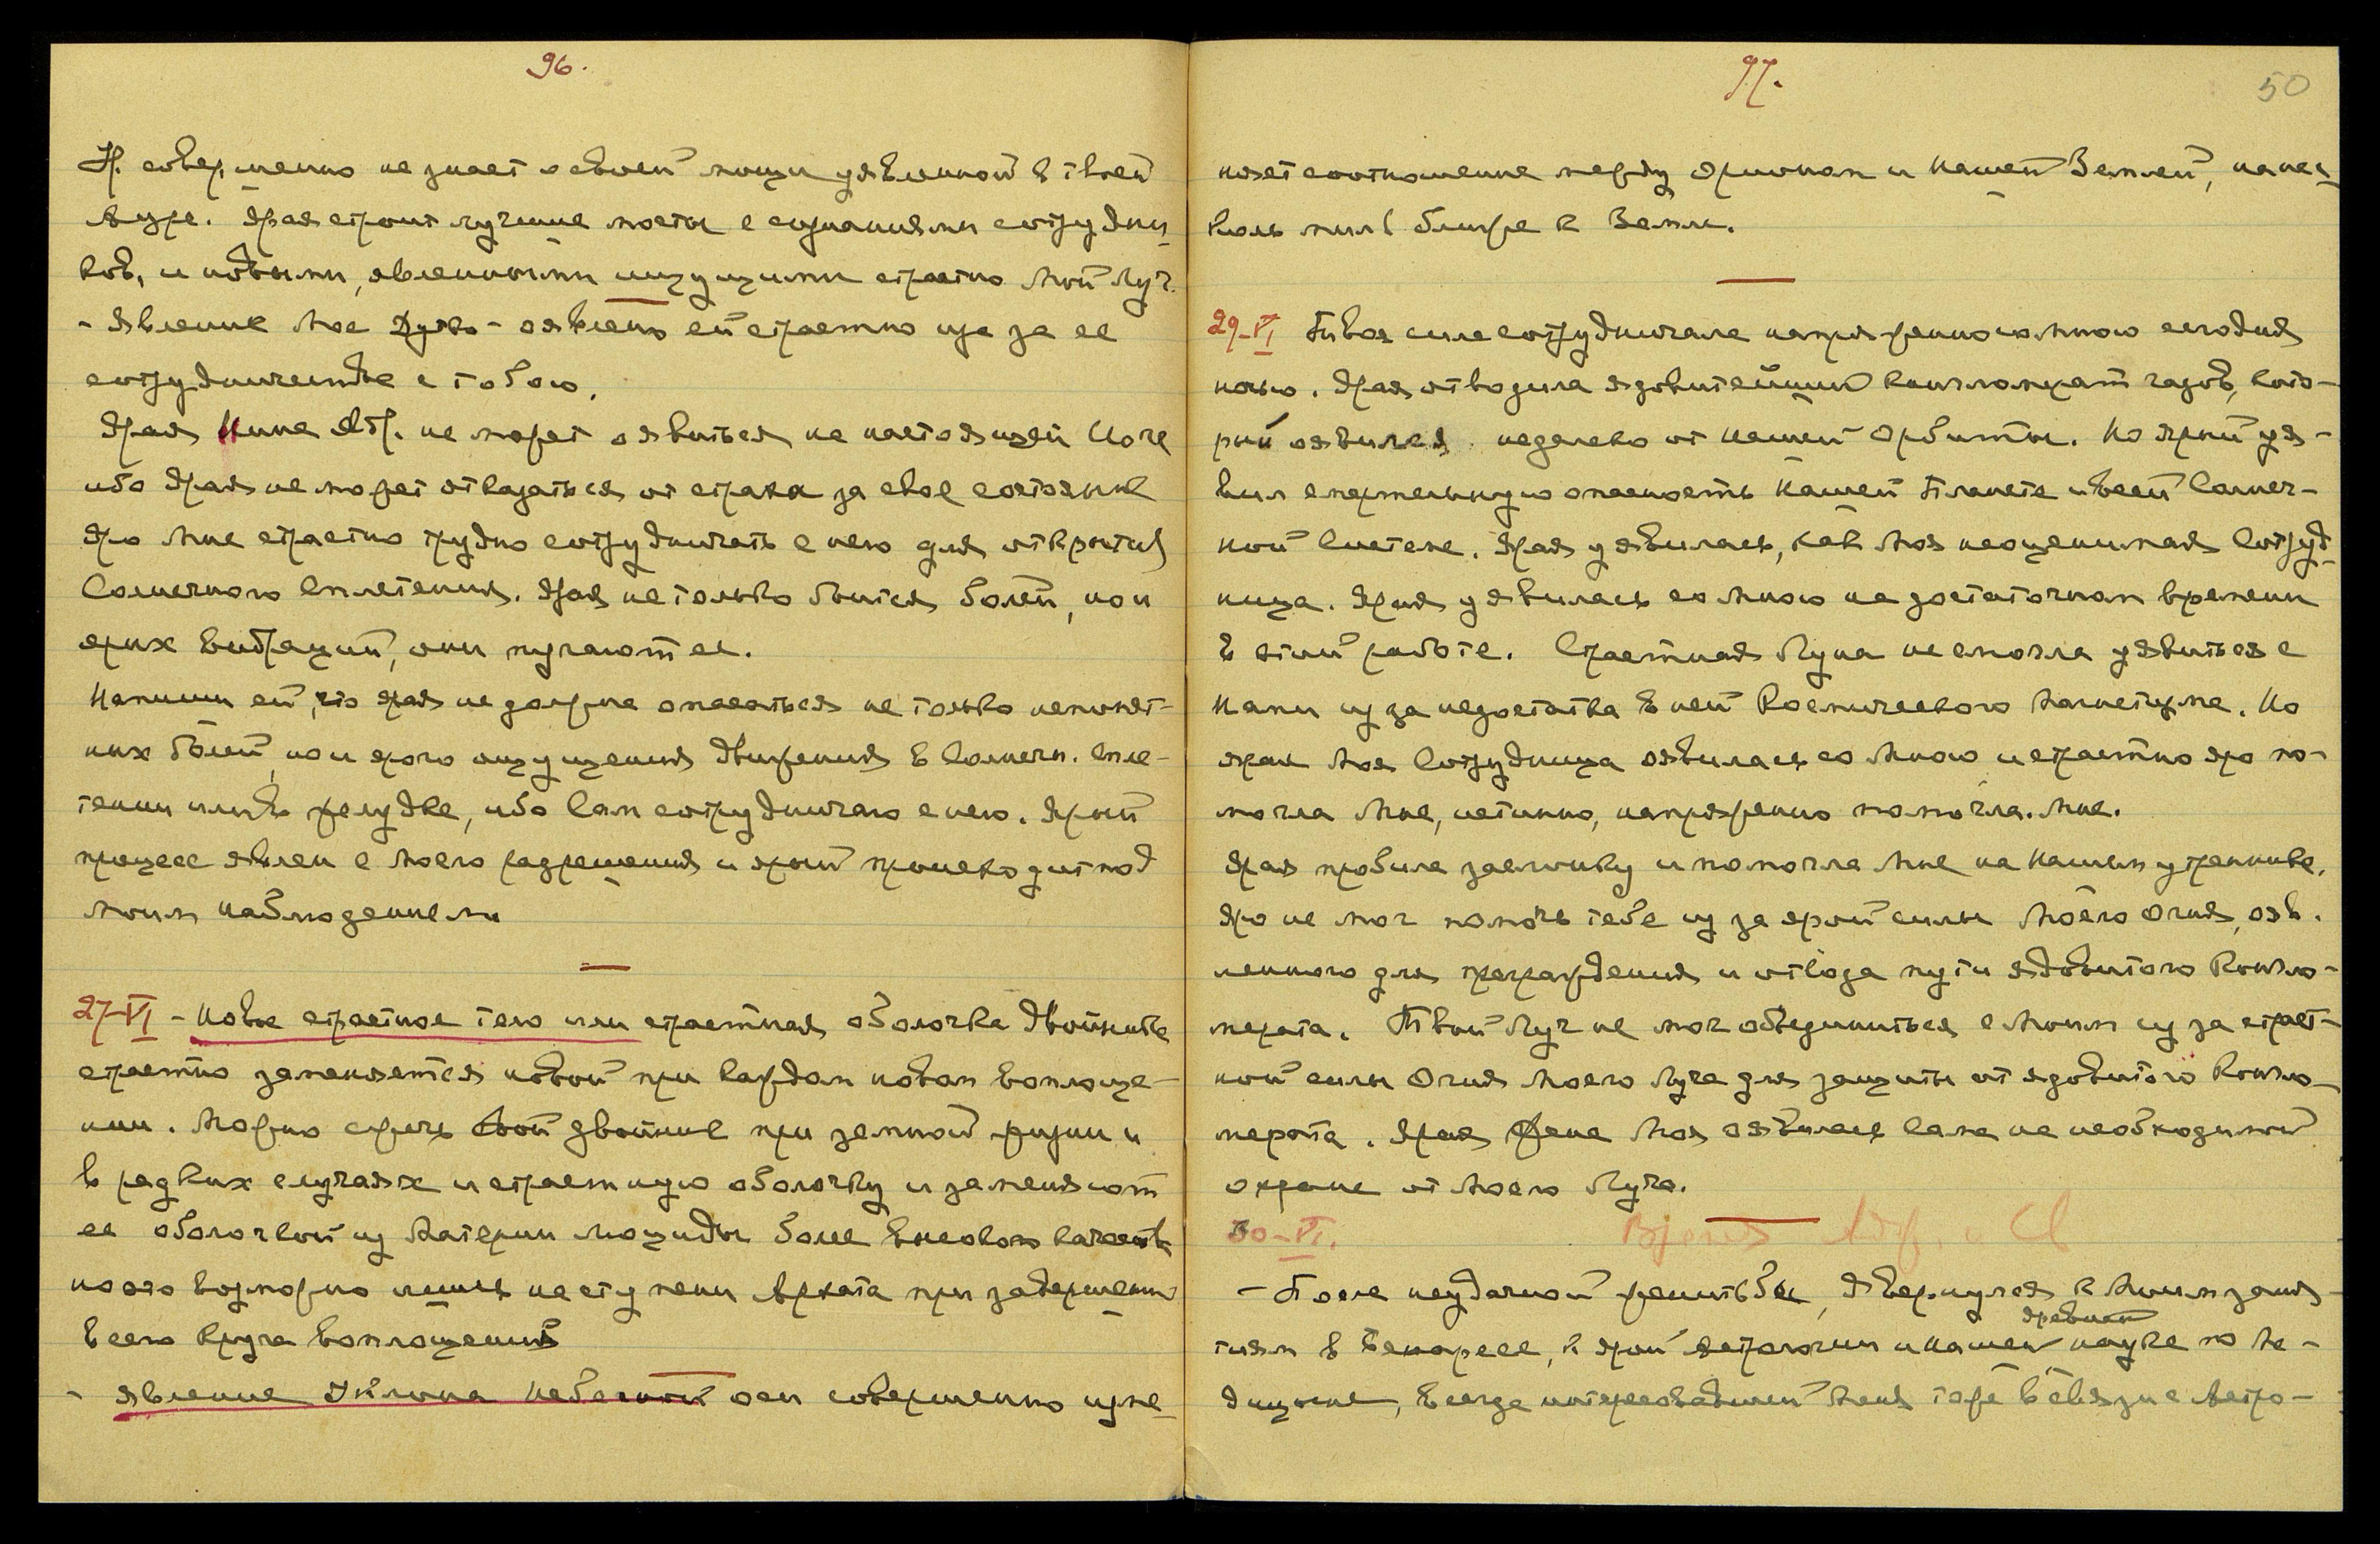 96.
Н. совершенно не знает о своей мощи уявленной в твоей
Ауре. Ярая строит лучшие мосты с сознаниями сотрудни-
ков, и новыми, явленными ищущими страстно Мой Луч.
- Явление Мое - оявлено ей страстно из за ее
сотрудничества с тобою.
Ярая Нина не может оявиться на настоящей Ноте
ибо Ярая не может отказаться от страха за свое состояние
Яро Мне страстно трудно сотрудничать с нею для открытия
Солнечного Сплетения. Ярая не только боится болей, но и
ярих вибраций, они пугают ее.
Напиши ей, что ярая не должна опасаться не только непонят-
ных болей, но и ярого ощущения движения в Солнечн. Спле-
тении или в желудке, ибо Сам сотрудничаю с нею. Ярый
процесс явлен с Моего разрешения и ярый происходит под
моим наблюдением
27-VI - Новое страстное тело или страстная оболочка двойника
страстно заменяется новой при каждом новом воплоще-
нии. Можно сжечь свой двойник при земной жизни и
в редких случаях и страстную оболочку и заменяют
ее оболочкой из Материи Люциды более высокого качества
но это возможно лишь на ступени Архата при завершении
всего круга воплощений
- явление Уклона небесной оси совершенно изме-
97.
50
няет соотношение между Орионом и Нашей Землей, на нес-
колько миль ближе к Земле.
29-VI Твоя сила сотрудничала напряженно со Мною сегодня
ночью. Ярая отводила ядовитейший конгломерат газов, кото-
рый оявился недалеко от нашей Орбиты. Но ярый уя-
вил смертельную опасность Нашей Планете и всей Солнеч-
ной Системе. Ярая уявилась, как Моя неоценимая Сотруд-
ница. Ярая уявилась со Мною на достаточном времени
в этой работе. Страстная Луна не смогла уявиться с
Нами из за недостатка в ней Космического Магнетизма. Но
ярая Моя Сотрудница оявилась со Мною и страстно яро по-
могла Мне, истинно, напряженно помогла Мне.
Ярая пробила заслонку и помогла Мне на Нашем утреннике.
Яро не мог помочь тебе из за ярой силы Моего Огня,ояв-
ленного для преграждения и отвода пути ядовитого Конгло-
мерата. Твой Луч не мог объединиться с Моим из за страст-
ной силы Огня Моего Луча для защиты от ядовитого Конгло-
мерата. Ярая Жена Моя оявилась сама на необходимой
охране от Моего Луча.
30-VI.
- После неудачной женитьбы, Я вернулся к Моим заня-
тиям в Бенаресе, к ярой Астрологии и нашей древней науке по Ме-
дицине, всегда интересовавшей Меня тоже в связи с Астро-